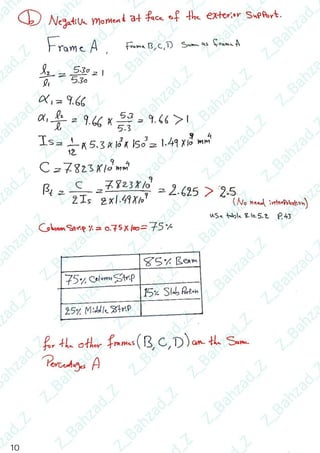 b Negative moment at face of the exterior Support.
Frame A, Frame B, C, D Same as Frame A
l₂/l₁ = 5.30/5.30 = 1
α₁ = 9.66
α₁ l₂/l₁ = 9.66 × 5.3/5.3 = 9.66 > 1
Is = 1/12 × 5.3 × 10³ × 150³ = 1.49 × 10⁹ mm⁴
C = 7.823 × 10⁹ mm⁴
βt = C/2Is = 7.823 × 10⁹/2×1.49×10⁹ = 2.625 > 2.5
(No need interpolation)
use table 8.10.5.2 P.43
Column Strip % = 0.75 × 100 = 75%
85% Beam
75% Column Strip
15% Slab Portion
25% Middle Strip
for the other frames (B, C, D) are the Same
Percentages A
10
Z_Bahzad_Z